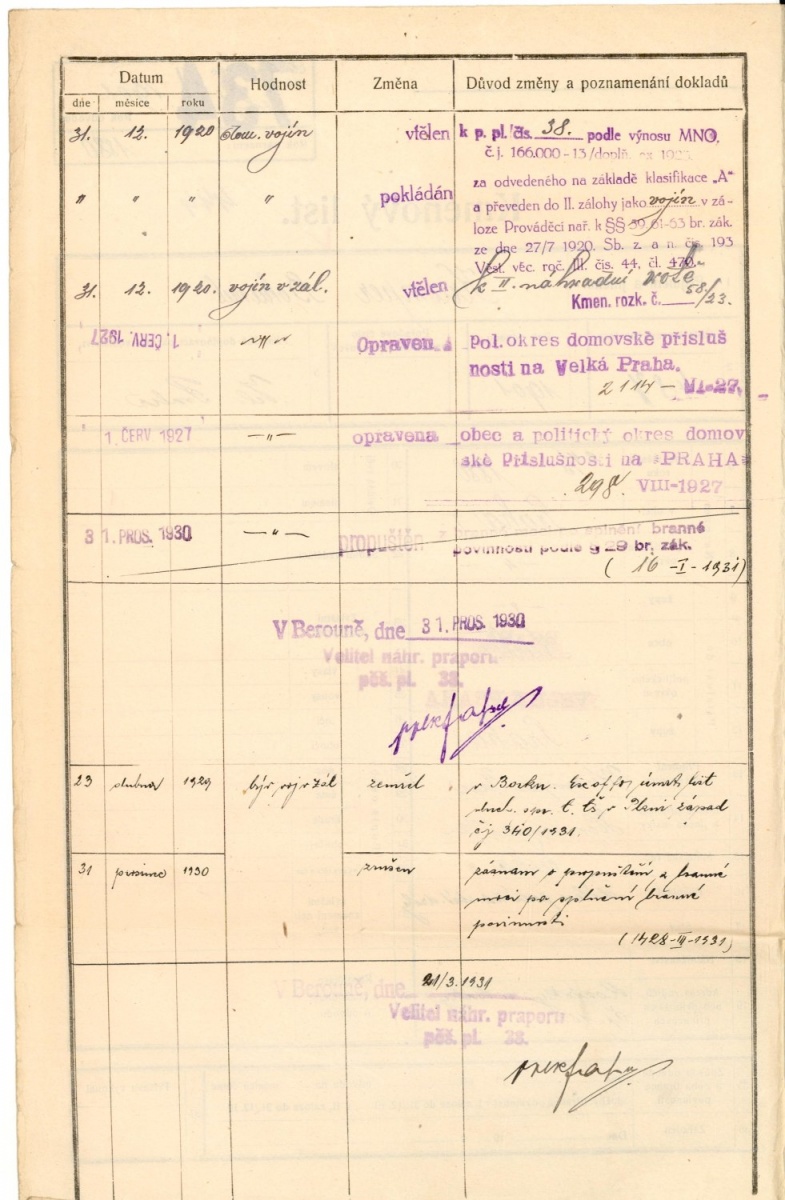 Datum Hodnost Změna Důvod změny a poznamenání dokladů
dne měsíce roku
31. 12. 1920 vojín vtělen k p. pl. čís. 38. podle výnosu MNO.
č. j. 166.000-13/doplň. ex
" " " " pokládán za odvedeného na základě klasifikace „A"
a převeden do II. zálohy jako vojín v zá-
loze Prováděcí nař. k §§ 39, 61-63 br. zák.
ze dne 27/7 1920. Sb. z. a n. čís 193
Věst. věc. roč. III. čís. 44, čl. 470.
31. 12. 1920. vojín v zál. vtělen k II. náhradní rotě
Kmen. rozk. č. 58/23.
1. ČERV. 1927 —"— Opraven Pol. okres domovské přísluš
nosti na Velká Praha.
2114 — VI-27.
1. ČERV 1927 —"— opravena obec a politický okres domov
ské Příslušnosti na »PRAHA«
298. VIII-1927
31. PROS. 1930 —"— propuštěn z branné moci po splnění branné
povinnosti podle § 29 br. zák.
(16 -I-1931)
V Berouně, dne 31. PROS. 1930
Velitel náhr. praporu
pěš. pl. 38.
23 dubna 1929 býv. voj. v zál. zemřel v Boru.
duch. spr. v Plzni západ
čj 340/1931.
31 prosince 1930 zrušen záznam o propuštění z branné
moci po splnění branné
povinnosti
(1428-III-1931)
V Berouně, dne 21/3.1931
Velitel náhr. praporu
pěš. pl. 38.